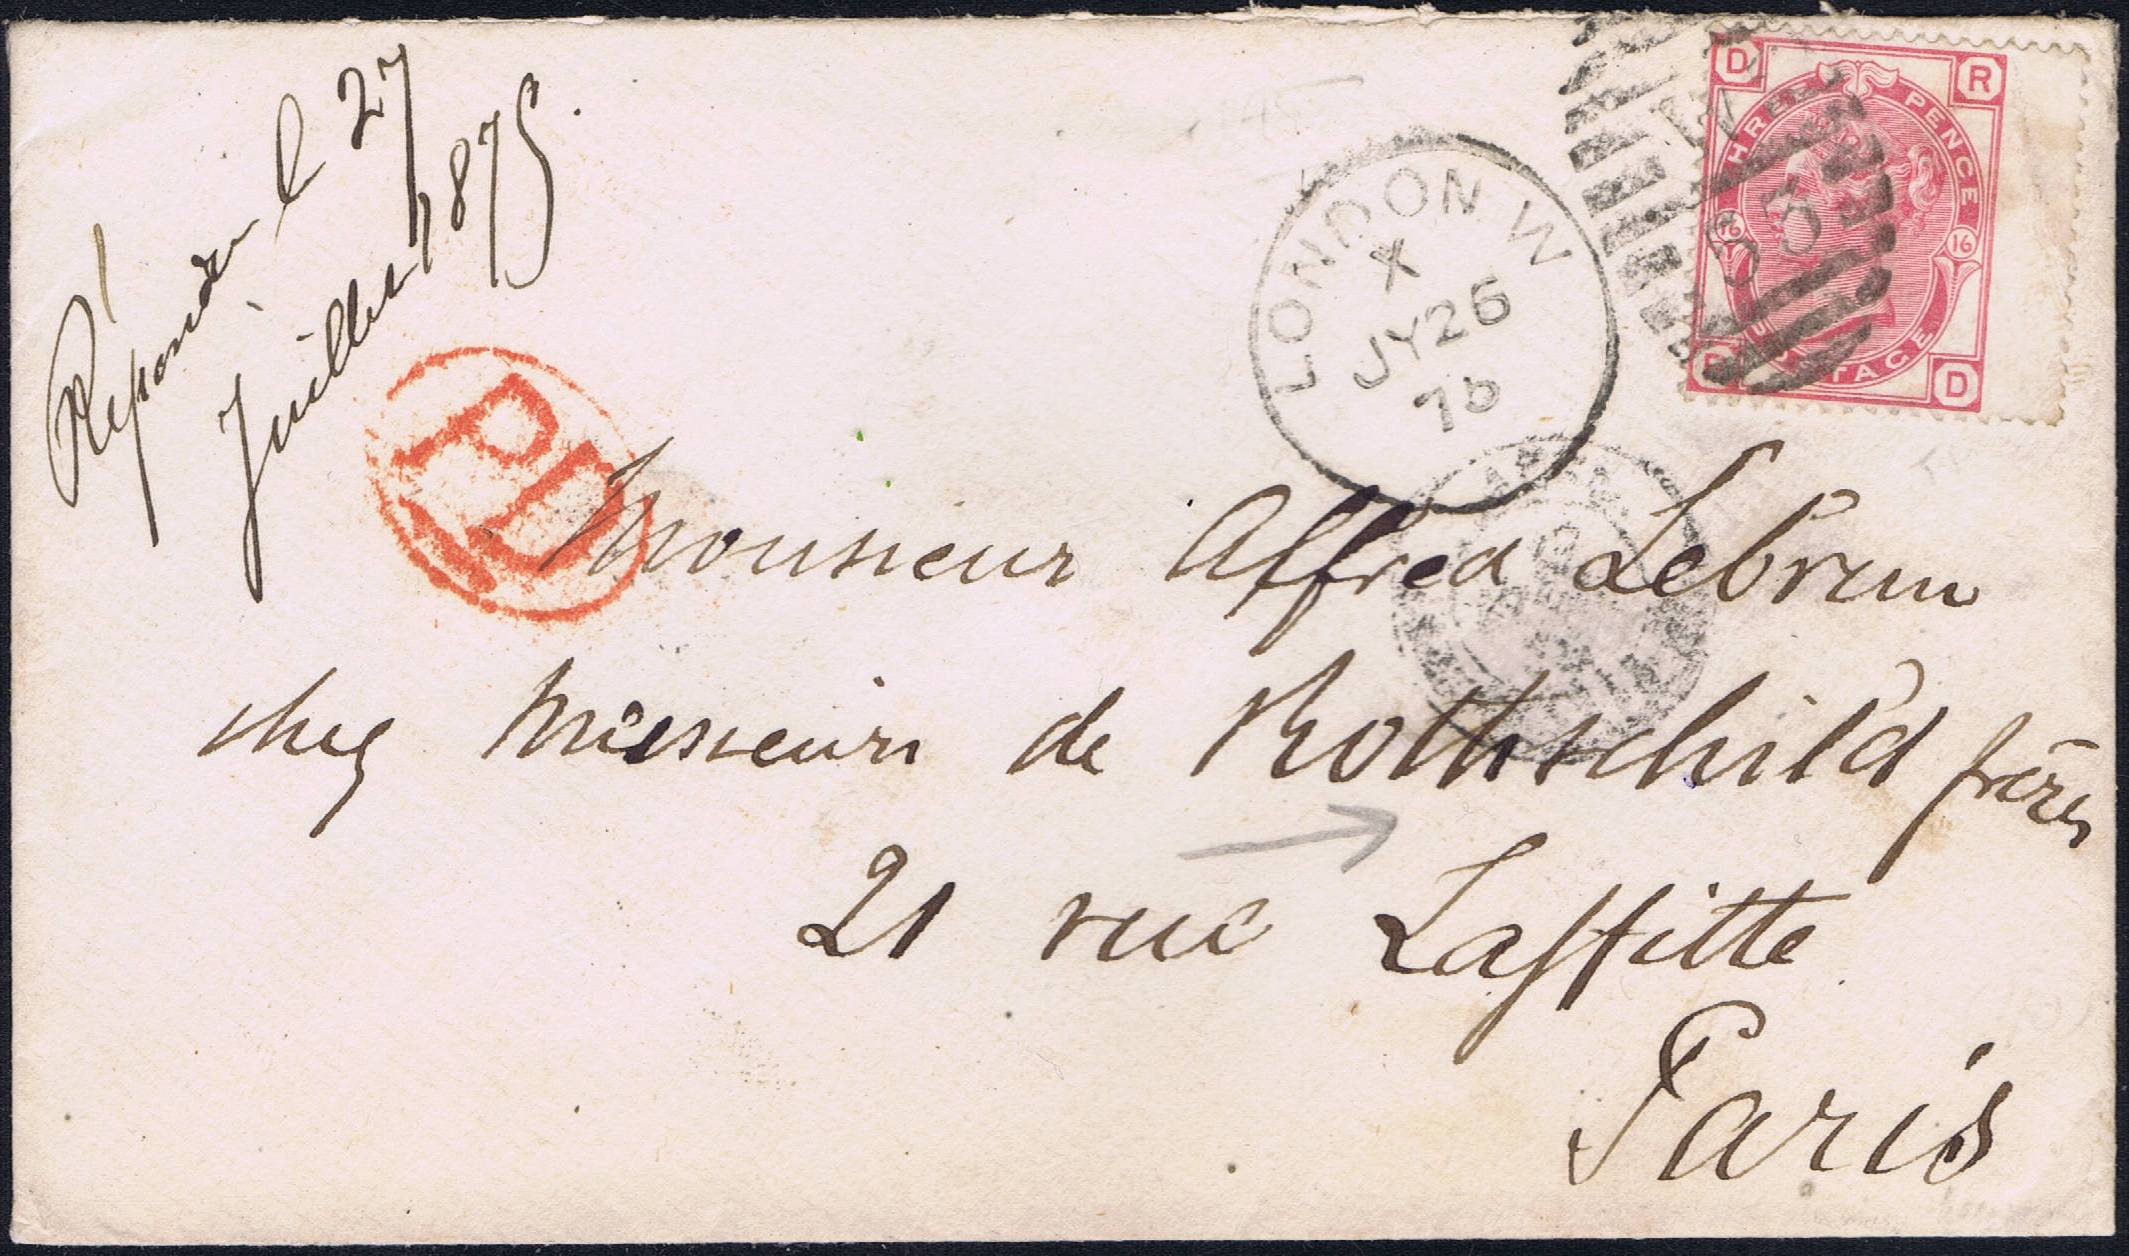 Réponder l 27
Juillet 1875.
PD
LONDON W
X
JY 26
75
W
63
D R
THREE PENCE
16 16
POSTAGE
D
Monsieur Alfred Lebrun
chez Messieurs de Rothschild frères
21 rue Laffitte
Paris